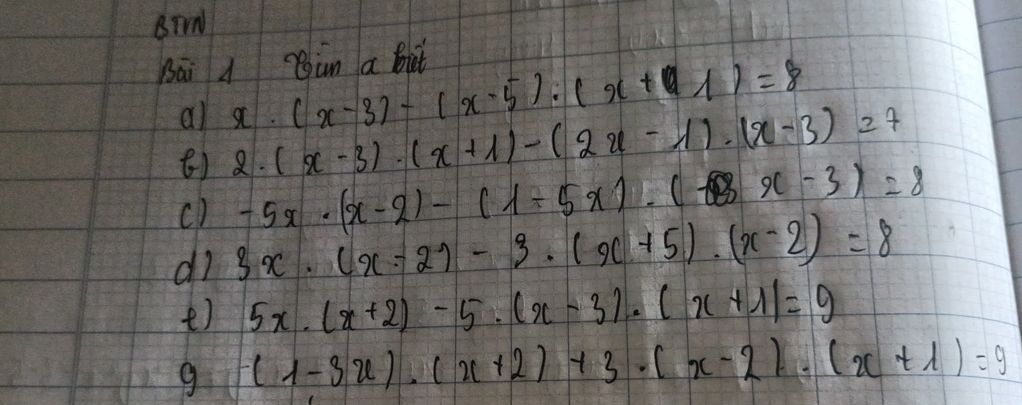 BTVN
Bài 1 Tìm x biết
a) x . (x - 3) - (x - 5) . (x + 1) = 8
b) 2 . (x - 3) . (x + 1) - (2x - 1) . (x - 3) = 7
c) -5x . (x - 2) - (1 - 5x) . ( x - 3) = 8
d) 3x . (x - 2) - 3 . (x + 5) . (x - 2) = 8
e) 5x . (x + 2) - 5 . (x - 3) . (x + 1) = 9
g (1 - 3x) . (x + 2) + 3 . (x - 2) . (x + 1) = 9